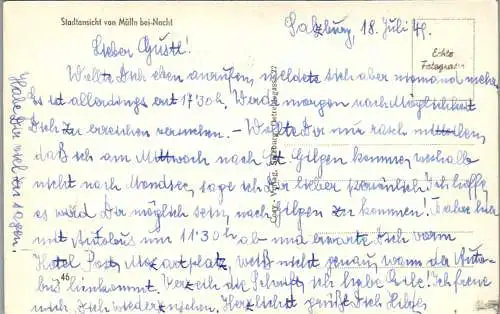 Stadtansicht von Mülln bei-Nacht
Salzburg, 18. Juli 49.
Echte
Fotografie
Lieber Gustl!
Wollte Dich eben anrufen, meldete sich aber niemand mehr.
Es ist allerdings erst 17'30 h. Werde morgen nach Möglichkeit
Dich zu erreichen versuchen. – Wollte Dir nur rasch mitteilen,
daß ich am Mittwoch nach St. Gilgen komme, weshalb
nicht nach Mondsee, sage ich Dir lieber persönlich. Ich hoffe,
es wird Dir möglich sein, nach Gilgen zu kommen! Fahre hier
mit Autobus um 11'30 h ab und erwarte Dich vorm
Hotel Post, Mozartplatz, weiß nicht genau, wann der Auto-
bus hinkommt. Verzeih die Schrift, ich habe Eile! Ich freue
mich, Dich wiederzusehen. Herzlichst grüßt Dich Hilde
Habe Dir viel zu sagen!
46